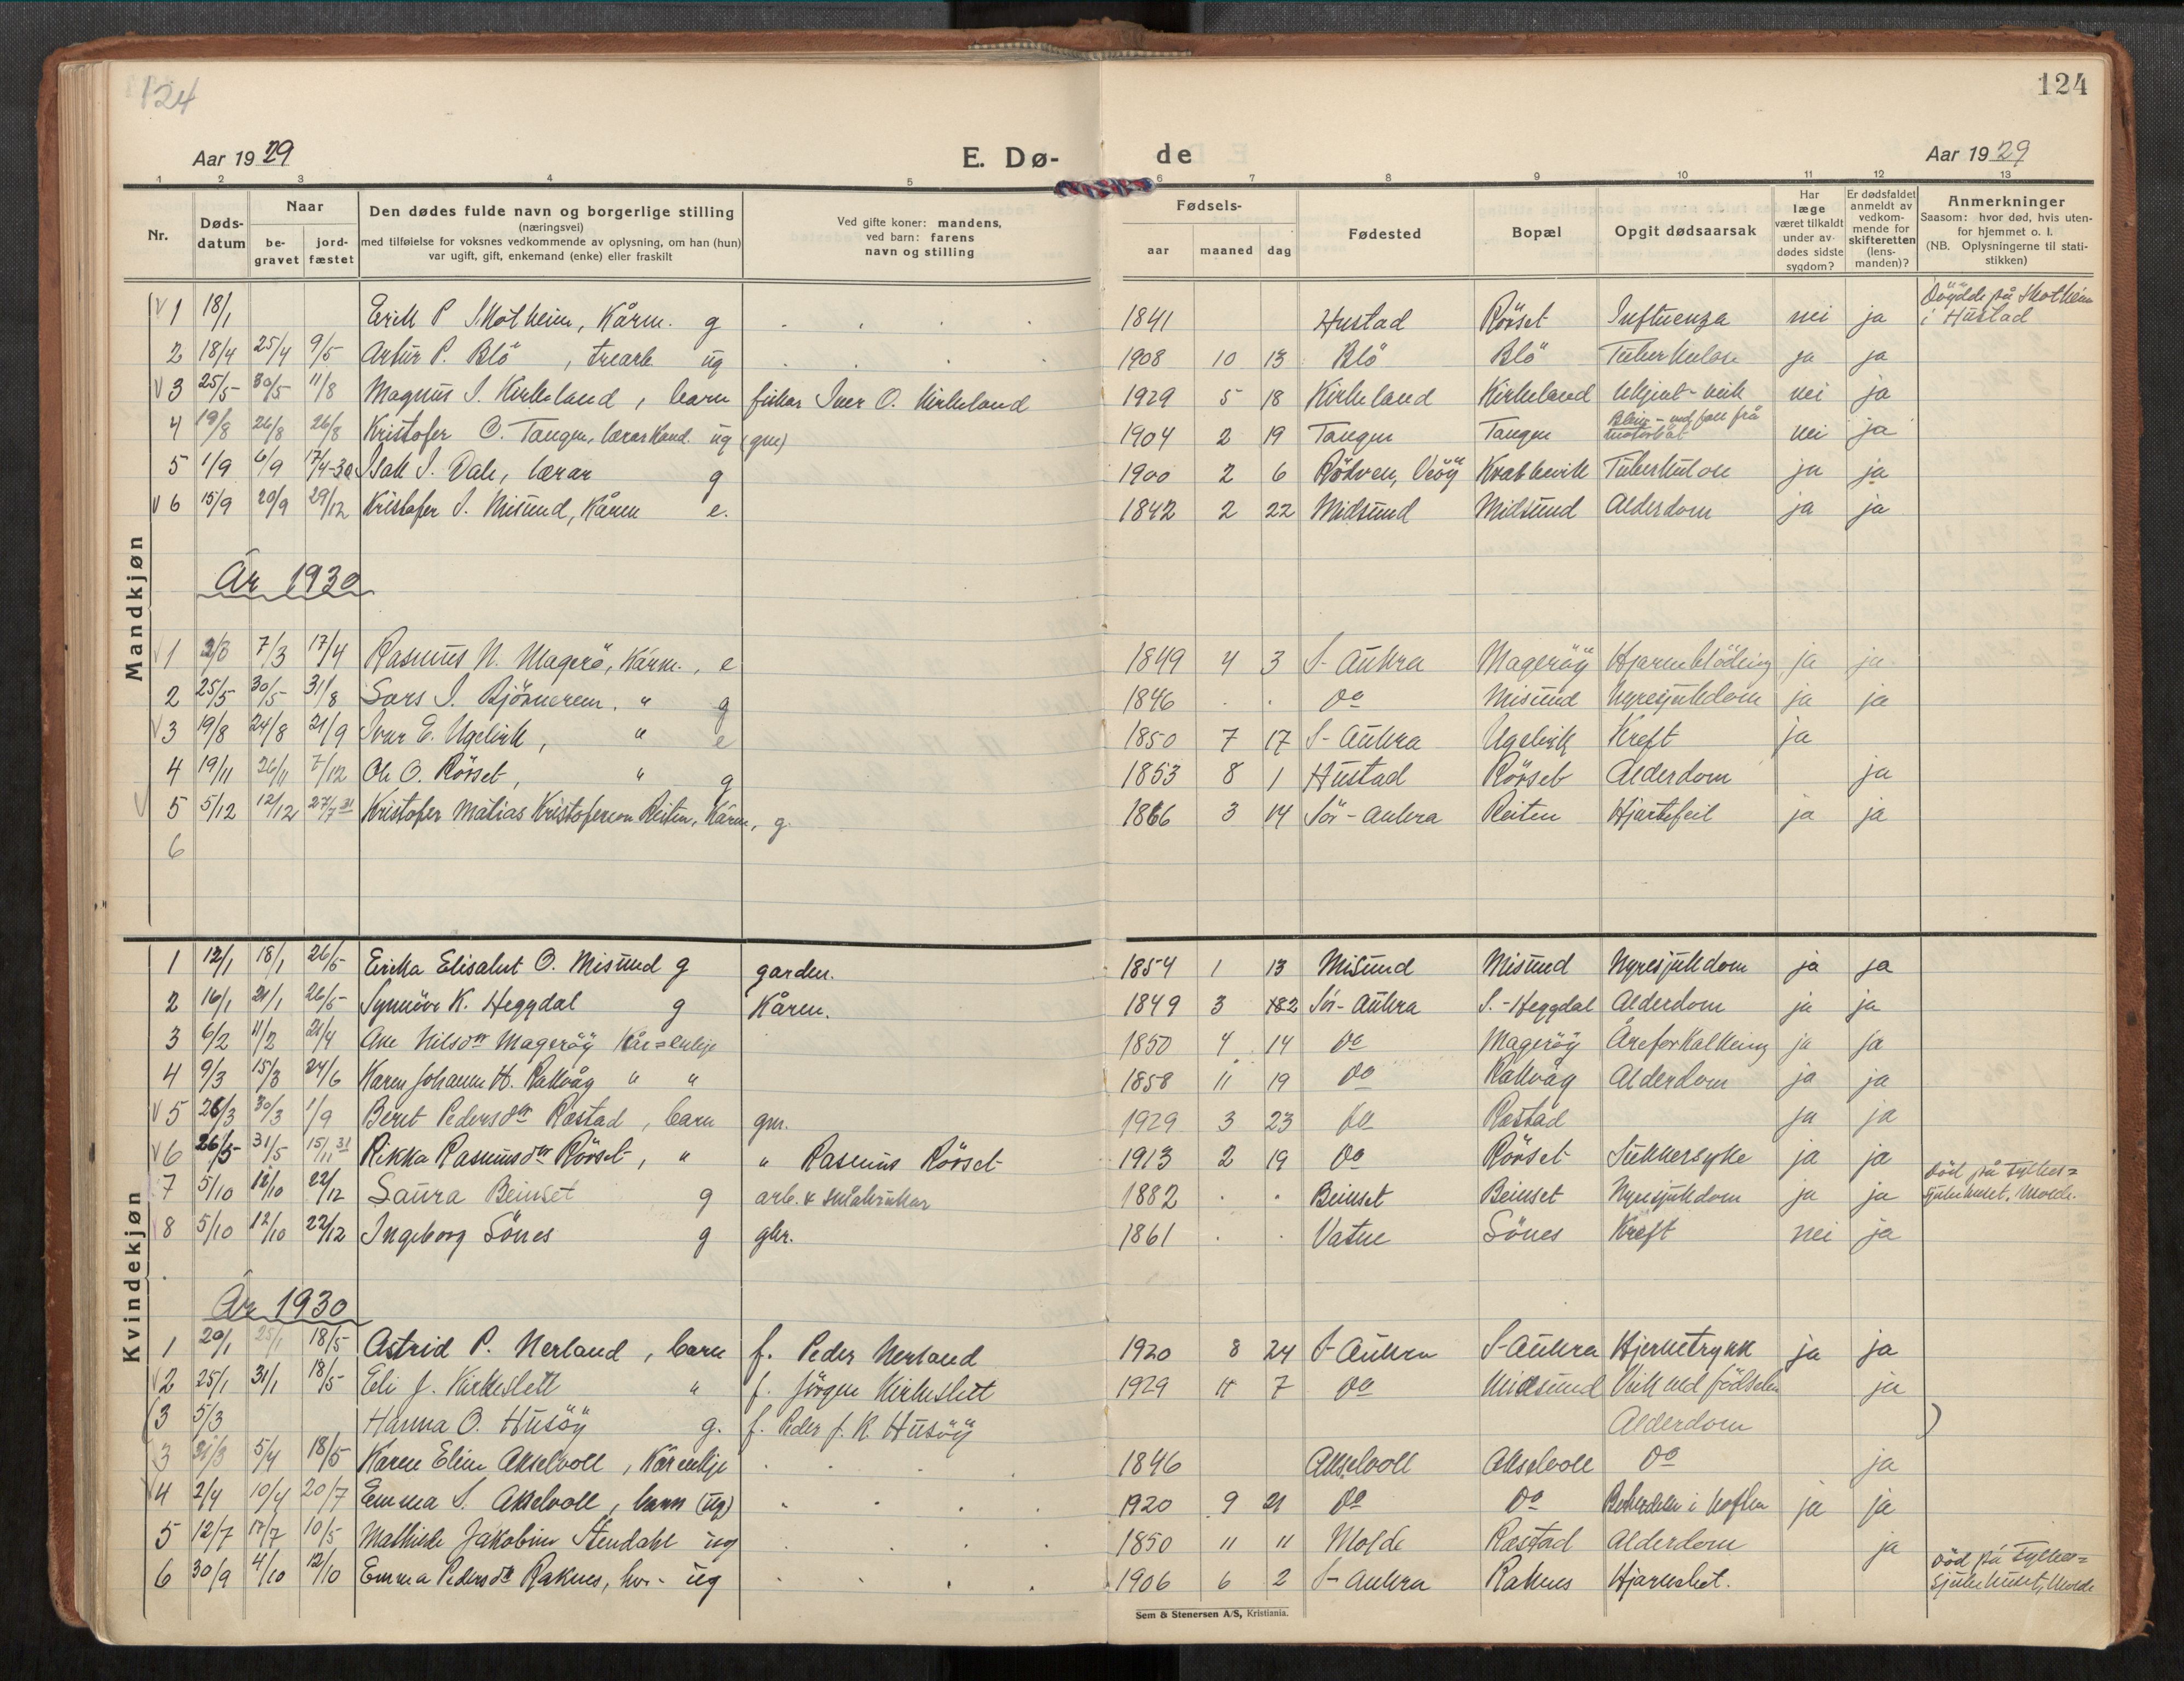 124
124
Aar 1929
E. Dø-
de
Aar 1929
1 2 3 4 5 6 7 8 9 10 11 12 13
Nr.
Døds-datum
Naar
be-gravet
jord-fæstet
Den dødes fulde navn og borgerlige stilling
(næringsvei)
med tilføielse for voksnes vedkommende av oplysning, om han (hun)
var ugift, gift, enkemand (enke) eller fraskilt
Ved gifte koner: mandens,
ved barn: farens
navn og stilling
Fødsels-
aar maaned dag
Fødested
Bopæl
Opgit dødsaarsak
Har læge været tilkaldt under av-dødes sidste sygdom?
Er dødsfaldet anmeldt av vedkom-mende for skifteretten (lens-manden)?
Anmerkninger
Saasom: hvor død, hvis uten-for hjemmet o. l.
(NB. Oplysningerne til stati-stikken)
Mandkjøn
V 1 18/1 Erik P Skotheim, Kårm. g 1841 Hustad Rörset Influenza nei ja Döydde på Skotheim i Hustad
2 18/4 25/4 9/5 Artur P. Blö, ug 1908 10 13 Blö Blö Tuberkulose ja ja
V 3 25/5 30/5 11/8 Magnus I. Kirkeland, barn fiskar Iver O. Kirkeland 1929 5 18 Kirkeland Kirkeland Ukjent - veik nei ja
4 19/8 26/8 26/8 Kristofer O. Tangen, lærarkand. ug (gm) 1904 2 19 Tangen Tangen ved fall frå motorbåt nei ja
5 1/9 6/9 17/4-30 Isak I. Dale, lærar g 1900 2 6 Rödven, Veöy Krabbevik Tuberkulose ja ja
V 6 15/9 20/9 29/12 Kristofer I. Misund, Kårm e. 1842 2 22 Midsund Midsund Alderdom ja ja
År 1930
V 1 2/3 7/3 17/4 Rasmus N. Magerö, Kårm., e 1849 4 3 S-Aukra Mageröy Hjarneblöding ja ja
2 25/5 30/5 31/8 Lars I. Björnerem, " g 1846 . . Do Misund Nyresjukdom ja ja
V 3 19/8 24/8 21/9 Ivar E. Ugelvik, " e 1850 7 17 S-Aukra Ugelvik Kreft ja
4 19/11 26/11 7/12 Ole O. Rörset, " g 1853 8 1 Hustad Rörset Alderdom ja
V 5 5/12 12/12 27/7 31 Kristofer Matias Kristofersen Reiten, Kårm, g. 1866 3 14 Sör-Aukra Reiten Hjartefeil ja ja
6
Kvindekjøn
1 12/1 18/1 26/5 Erika Elisabet O. Misund g garden. 1854 1 13 Misund Misund Nyresjukdom ja ja
2 16/1 21/1 26/5 Synnöve K. Heggdal g Kårm. 1849 3 Sör-Aukra S.-Heggdal Alderdom ja ja
3 6/2 11/2 21/4 Ane Nilsdtr Mageröy Kår=enkje 1850 4 14 Do Mageröy Åreforkalkning ja ja
4 9/3 15/3 24/6 Karen Johanne H. Rakvåg " " 1858 11 19 Do Rakvåg Alderdom ja ja
V 5 26/3 30/3 1/9 Beret Pedersdtr Rastad, barn gm. 1929 3 23 Do Rastad ja ja
V 6 26/5 31/5 15/11 31 Rikka Rasmusdtr Rörset, " " Rasmus Rörset 1913 2 19 Do Rörset Sukkersyke ja ja
7 5/10 12/10 22/12 Laura Beinset g arb. & småbrukar 1882 . . Beinset Beinset Nyresjukdom ja ja Död på Fylkes=sjukehuset, Molde.
V 8 5/10 12/10 22/12 Ingeborg Sönes g gbr. 1861 . . Vatne Sönes Kreft nei ja
År 1930
1 20/1 25/1 18/5 Astrid P. Nerland, barn f. Peder Nerland 1920 8 24 S-Aukra S-Aukra Hjernetrykk ja ja
V 2 25/1 31/1 18/5 Eli J. Kirkeslett " f. Jörgen Kirkeslett 1929 11 7 Do Midsund Veik ved födselen ja
(3 5/3 Hanna O. Husöy g. f. Peder J. K. Husöy Alderdom )
3 31/3 5/4 18/5 Karen Eline Akselvoll, Kårenkje 1846 Akselvoll Akselvoll Do ja
V 4 2/4 10/4 20/7 Emma S. Akselvoll, barn (ug) 1920 9 21 Do Do i hoften ja ja
5 12/7 17/7 10/5 Mathilde Jakobine Stendahl ug 1850 11 11 Molde Rastad Alderdom ja
6 30/9 4/10 12/10 Emma Pedersdtr Raknes, ug 1906 6 2 S-Aukra Raknes Död på Fylkes=sjukehuset, Molde
Sem & Stenersen A/S, Kristiania.